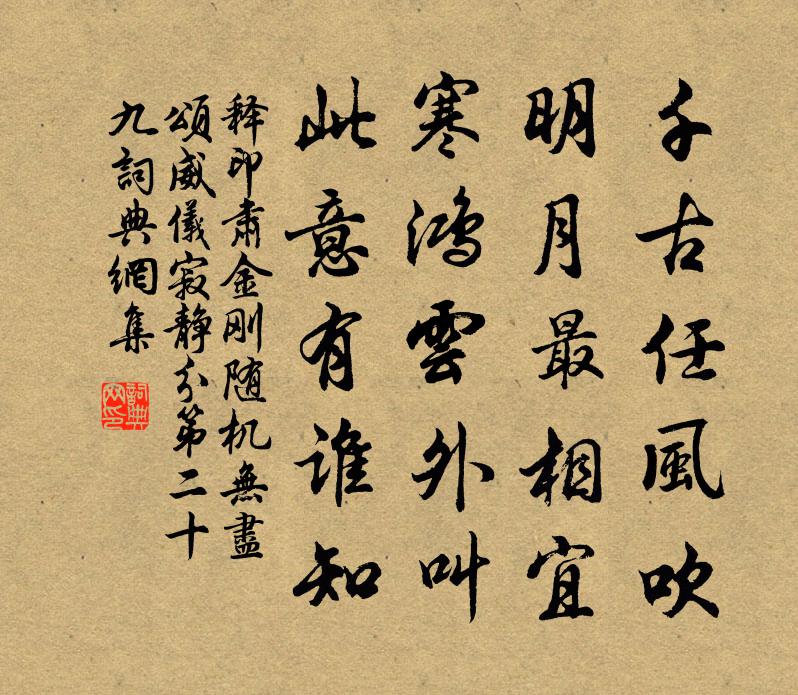 千古任風吹
明月最相宜
寒鸿雲外叫
此意有谁知
释印肃金刚随机無盡
頌威儀寂静分第二十
九詞典網集
詞典
网印